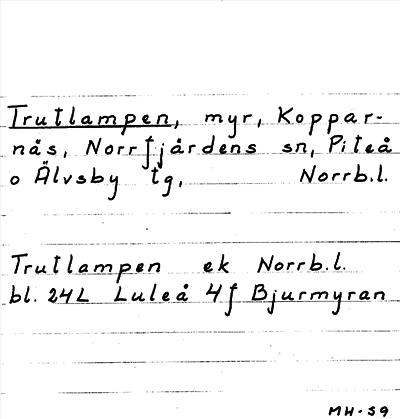 Trutlampen, myr, Koppar-
näs, Norrfjärdens sn, Piteå
o Älvsby tg, Norrb.l.
Trutlampen ek Norrb.l.
bl. 24L Luleå 4f Bjurmyran
MH-59